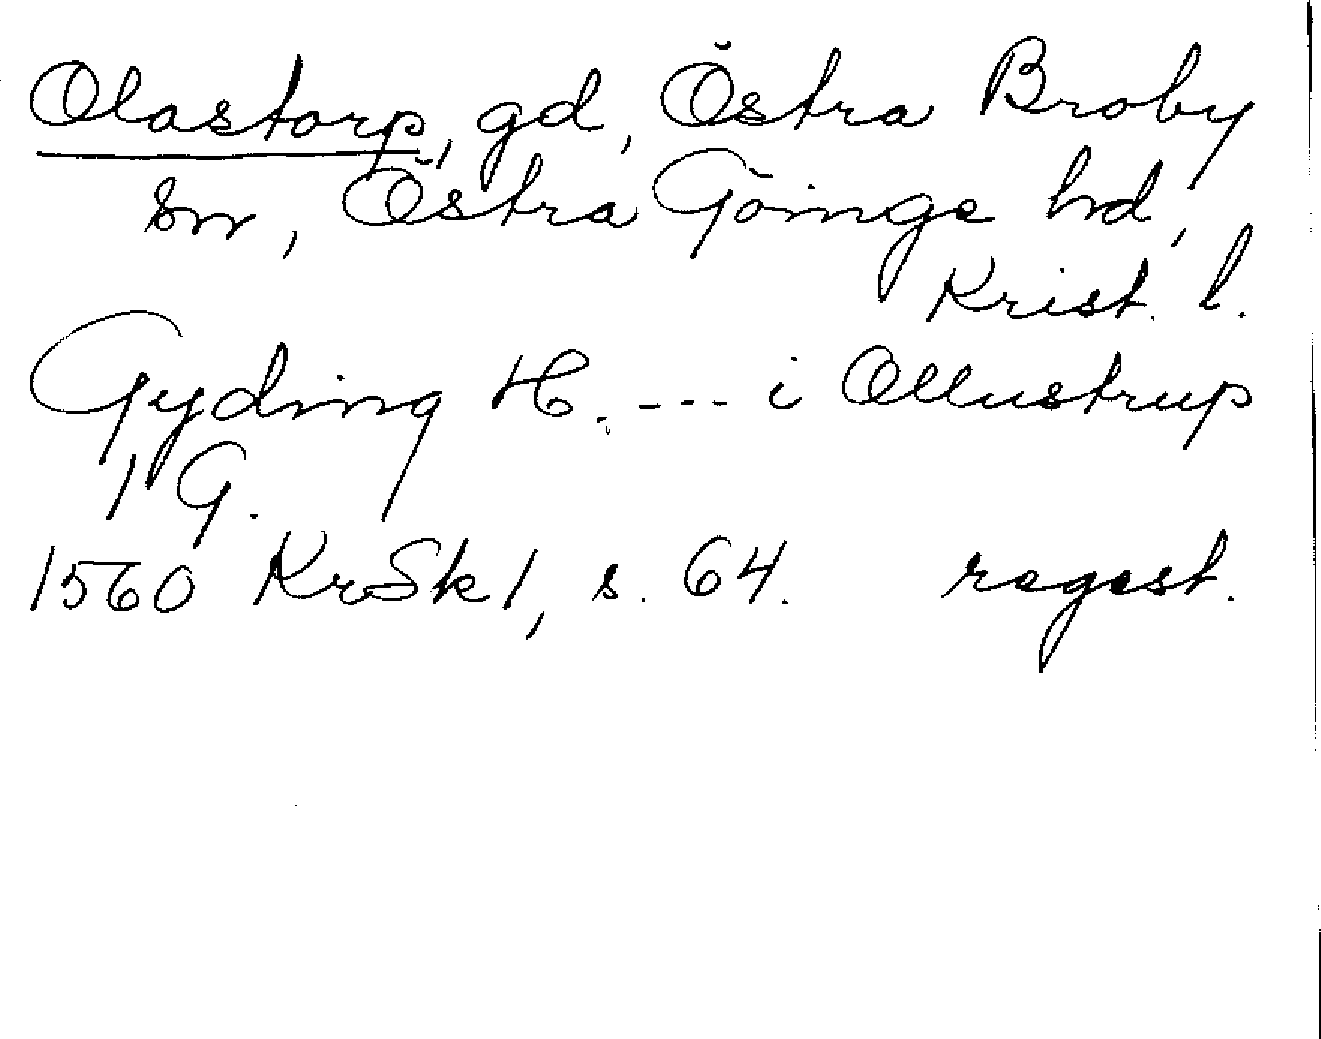 Olastorp, gd, Östra Broby
sn, Östra Göinge hd,
Krist. l.
Gyding H. --- i Ollustrup
1 G.
1560 KrSk 1, s. 64. regest.